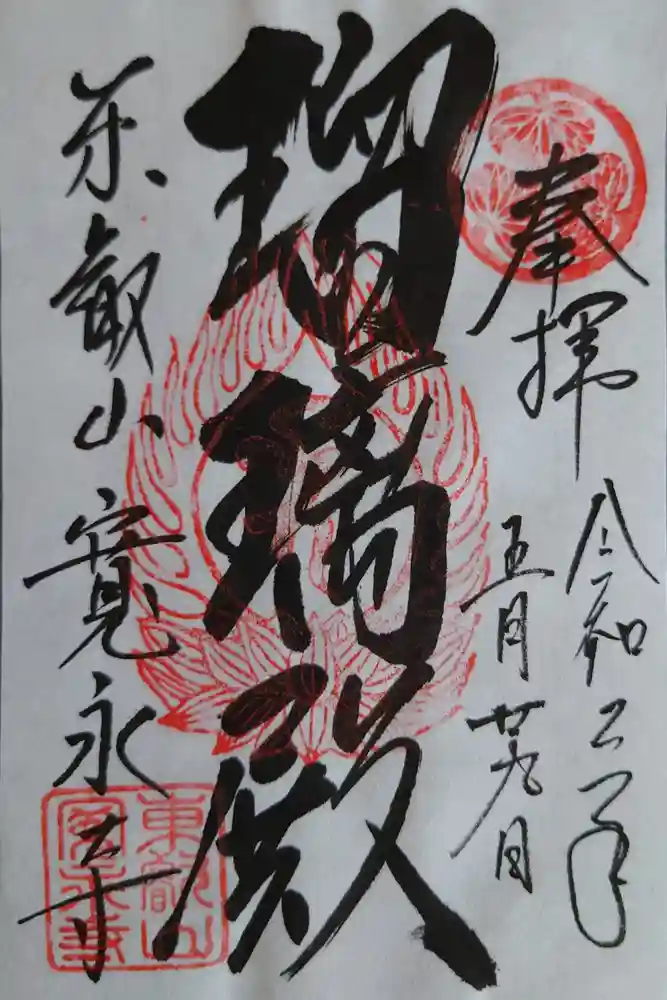 奉拝
令和二年
五月廿九日
瑠璃殿
东叡山 寛永寺
東叡山
寛永寺